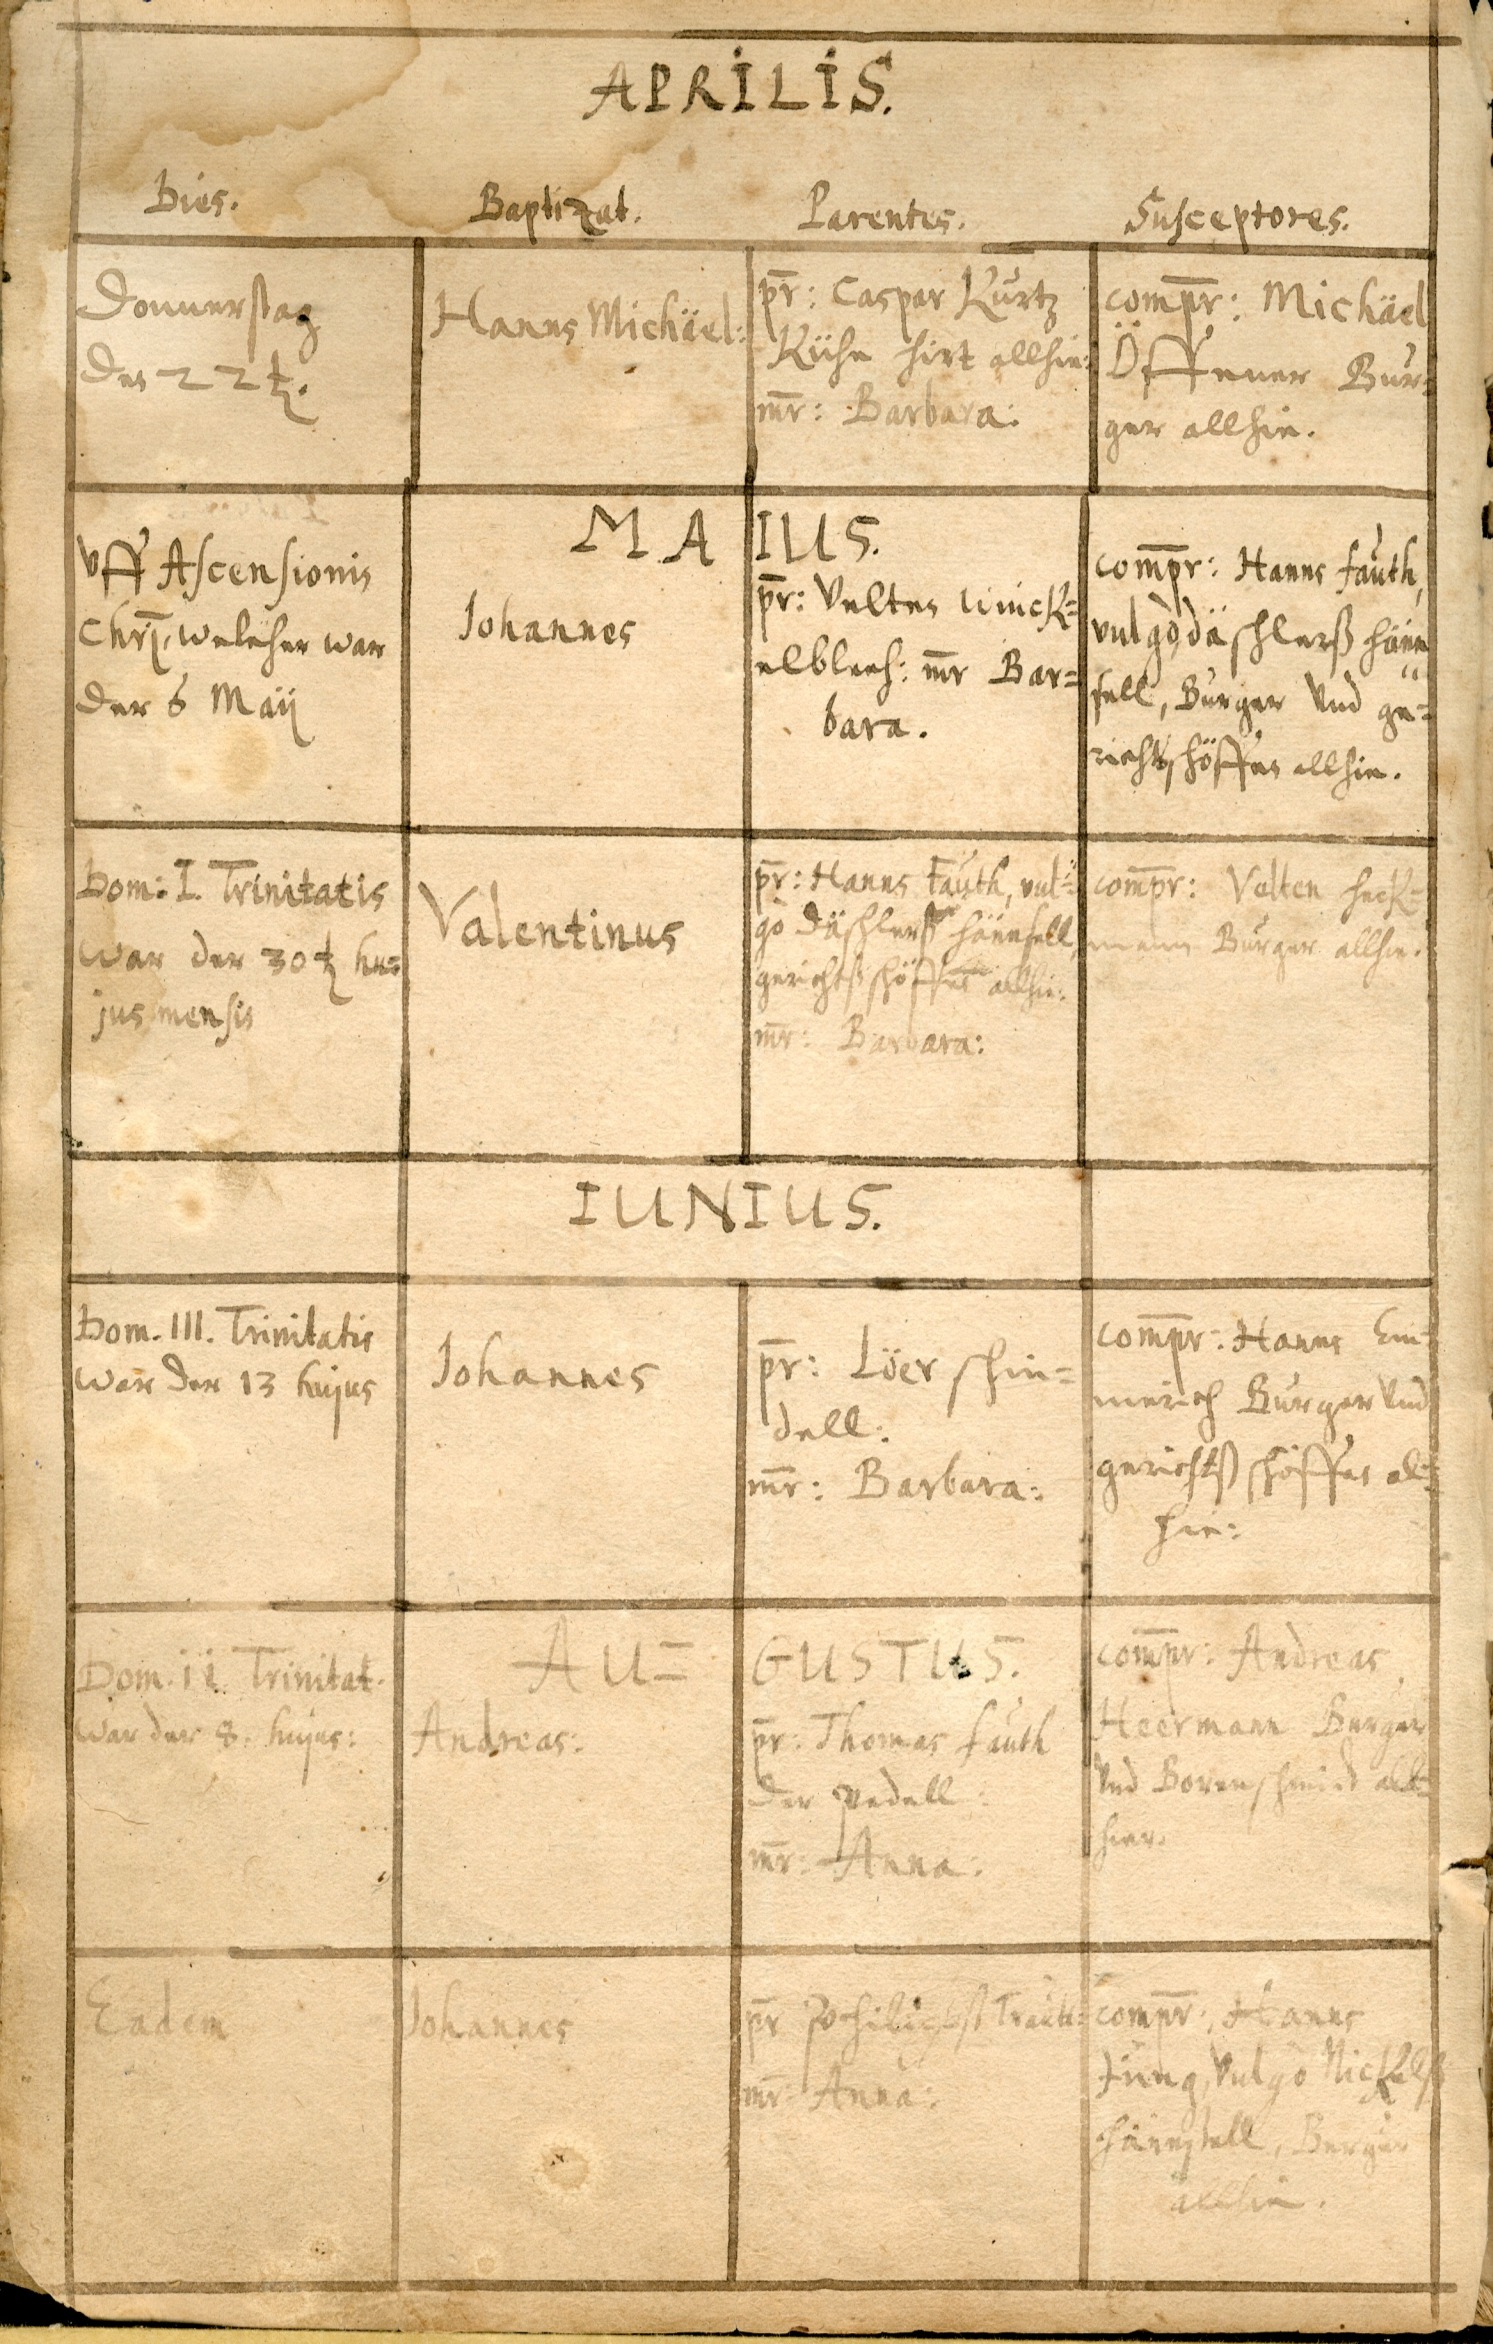 APRILIS.
Dies. Baptizat. Parentes. Susceptores.
Donnerstag
den 22t.
Hanns Michäel:
pr: Caspar Kurtz
Kühe hirt allhie:
mr: Barbara:
compr: Michäel
Öffener Bur=
ger allhie.
MAIUS.
Vff Ascensionis
Chrj, welcher war
der 6 Maij
Iohannes
pr: Velten Winck=
elblech: mr Bar=
bara.
compr: Hanns fauth,
vulgò däschlerß hänn
sell, Burger Vnd ge=
richtschöffen allhie.
Dom: I. Trinitatis
war der 30t hu=
jus mensis
Valentinus
pr: Hanns Fauth, vul=
gò Däschlerß hännsell,
gerichtßschöffen allhie:
mr: Barbara:
compr: Velten heck=
mann Burger allhie.
IUNIUS.
Dom. III. Trinitatis
war der 13 hujus
Iohannes
pr: Löer schin=
dell:
mr: Barbara:
compr: Hanns Em=
merich Burger Vnd
gerichtßschöffen al=
hie:
AU= GUSTUS.
Dom. 11. Trinitat.
war der 8. hujus:
Andreas:
pr: Thomas fauth
der pedell:
mr: Anna:
compr: Andreas
Heermann Burger
Vnd Borenschmid all=
hier.
Eadem
Iohannes
pr
mr: Anna:
compr: Hanns
Jung, Vulgò Nickelß
hännsell, Burger
allhie.